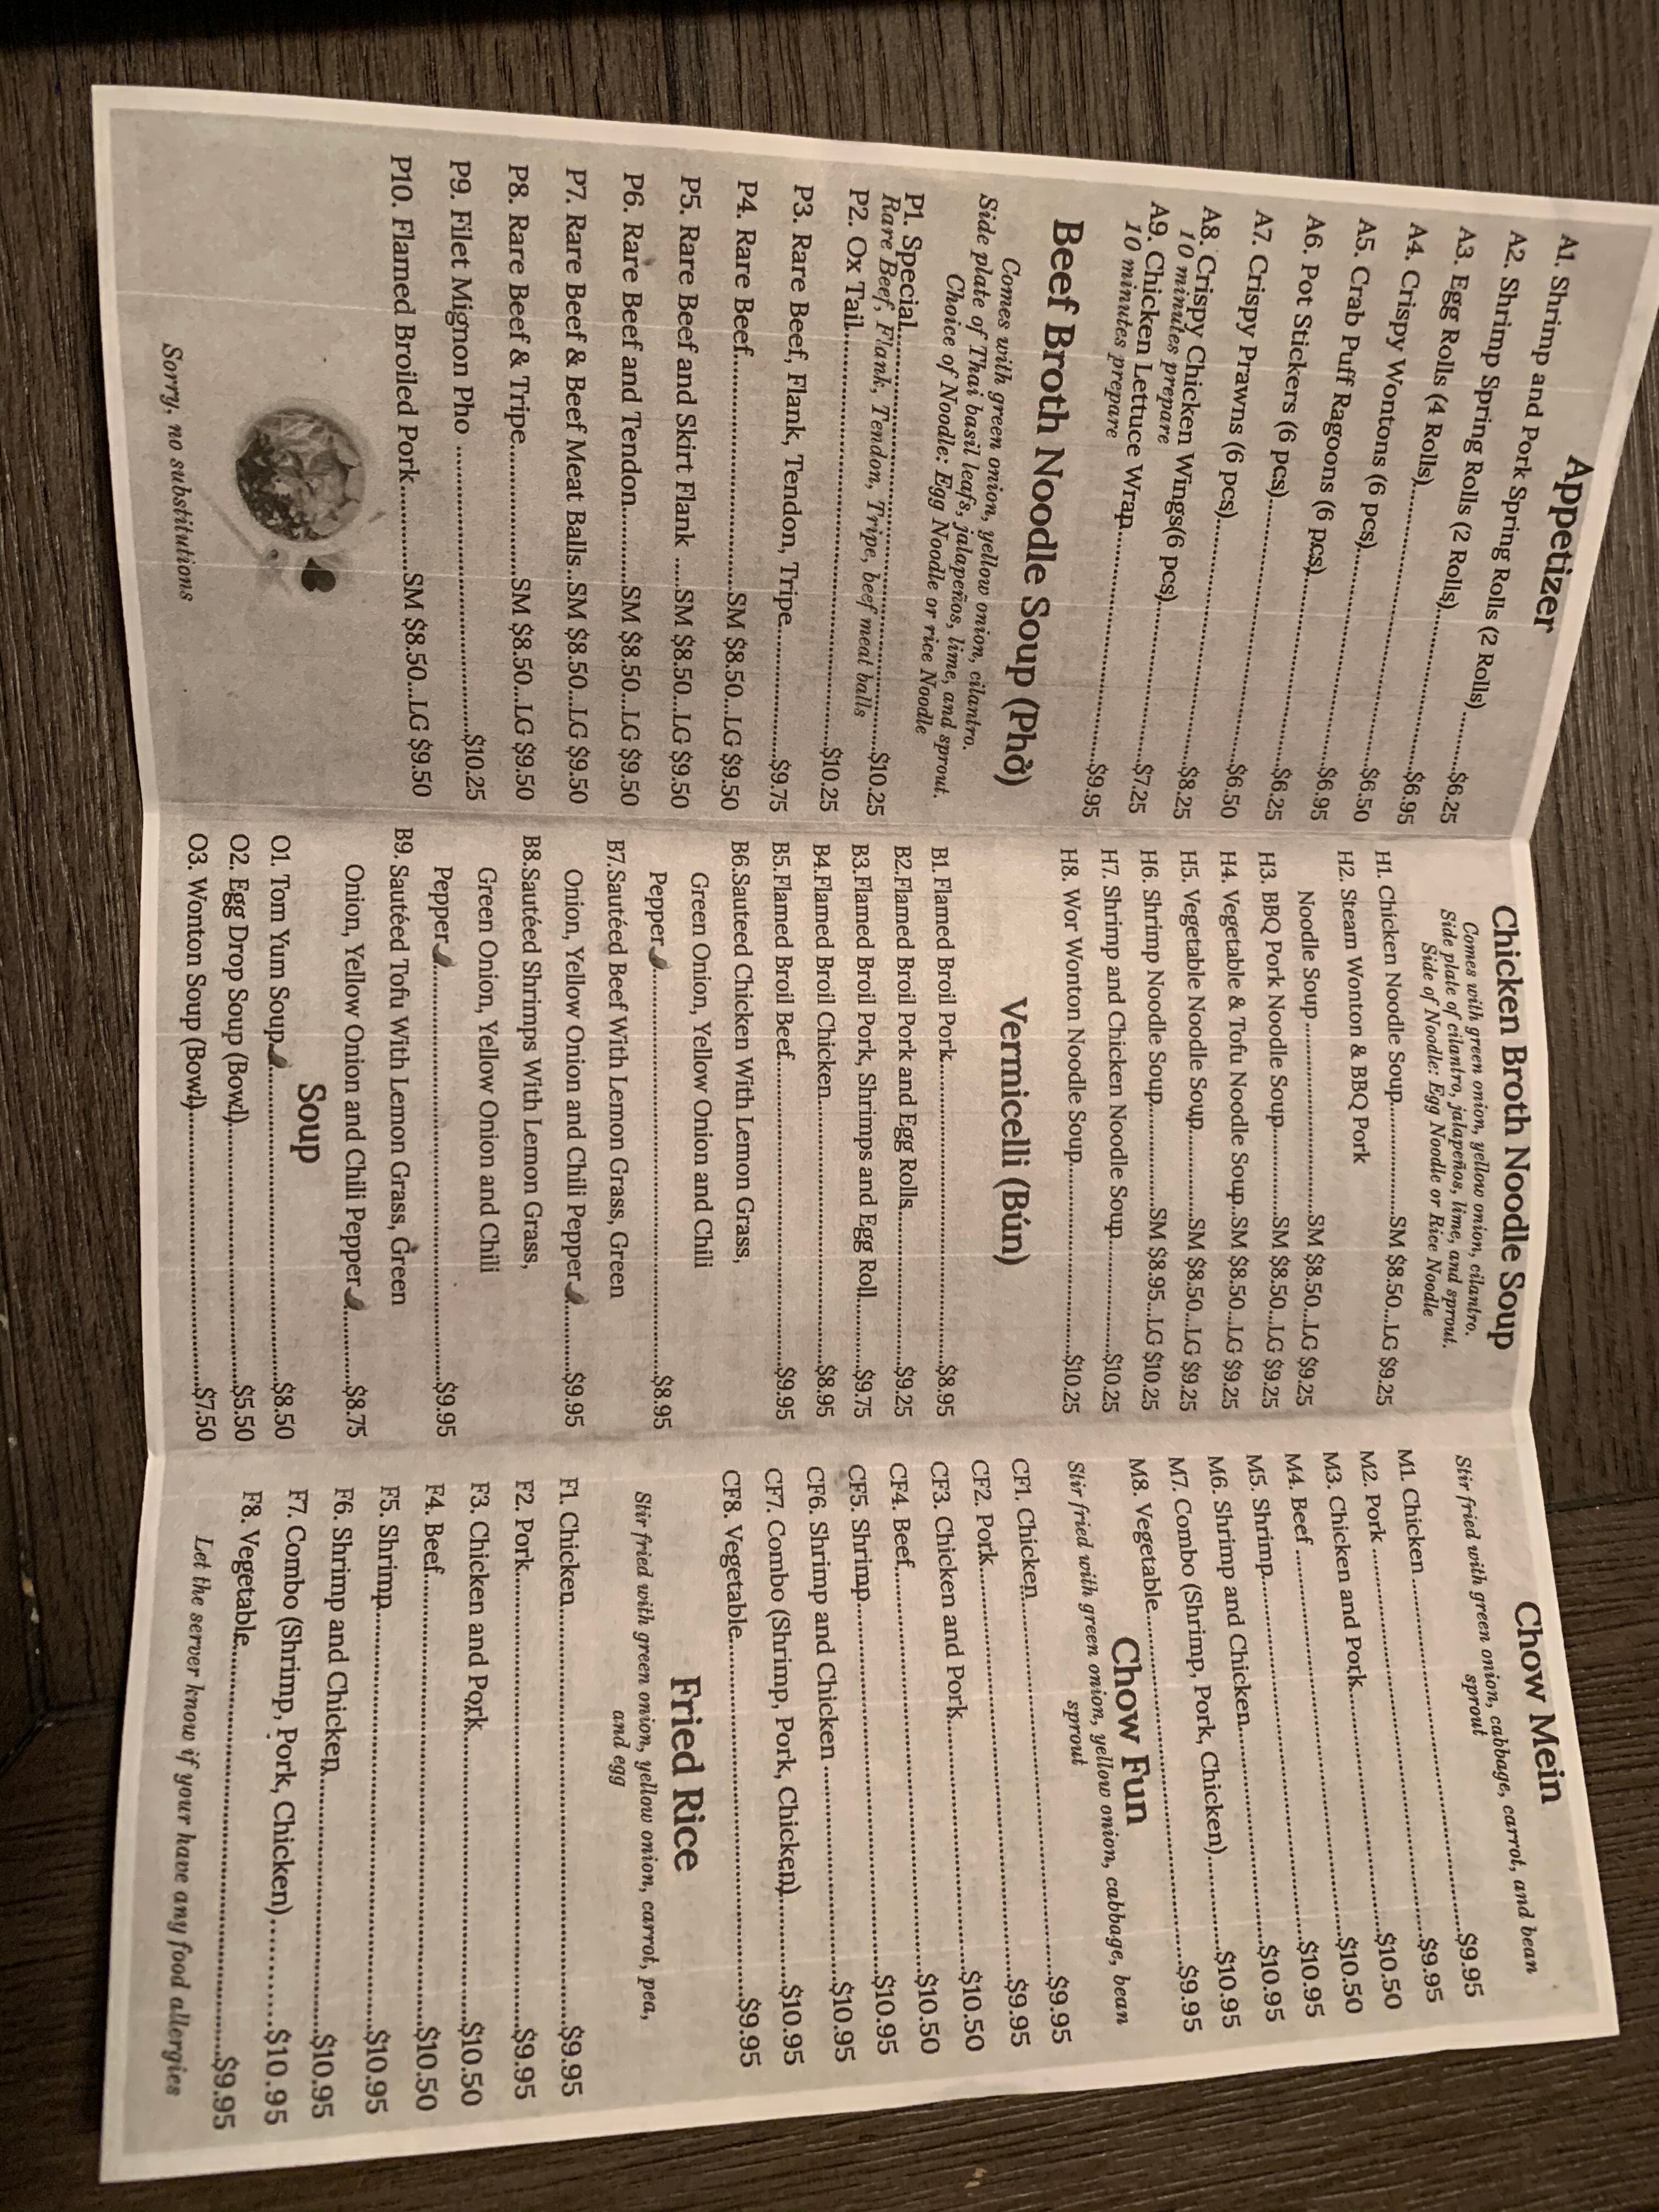 Appetizer
A1. Shrimp and Pork Spring Rolls (2 Rolls) ..........$6.25
A2. Shrimp Spring Rolls (2 Rolls)..........$6.95
A3. Egg Rolls (4 Rolls)..........$6.50
A4. Crispy Wontons (6 pcs)..........$6.95
A5. Crab Puff Ragoons (6 pcs)..........$6.25
A6. Pot Stickers (6 pcs)..........$6.50
A7. Crispy Prawns (6 pcs)..........$8.25
A8. Crispy Chicken Wings(6 pcs)..........$7.25
10 minutes prepare
A9. Chicken Lettuce Wrap..........$9.95
10 minutes prepare
Beef Broth Noodle Soup (Phở)
Comes with green onion, yellow onion, cilantro.
Side plate of Thai basil leafs, jalapeños, lime, and sprout.
Choice of Noodle: Egg Noodle or rice Noodle
P1. Special..........$10.25
Rare Beef, Flank, Tendon, Tripe, beef meat balls
P2. Ox Tail..........$10.25
P3. Rare Beef, Flank, Tendon, Tripe..........$9.75
P4. Rare Beef..........SM $8.50...LG $9.50
P5. Rare Beef and Skirt Flank .....SM $8.50...LG $9.50
P6. Rare Beef and Tendon..........SM $8.50...LG $9.50
P7. Rare Beef & Beef Meat Balls..SM $8.50...LG $9.50
P8. Rare Beef & Tripe..........SM $8.50...LG $9.50
P9. Filet Mignon Pho ..........$10.25
P10. Flamed Broiled Pork..........SM $8.50...LG $9.50
Sorry, no substitutions
Chicken Broth Noodle Soup
Comes with green onion, yellow onion, cilantro.
Side plate of cilantro, jalapeños, lime, and sprout.
Side of Noodle: Egg Noodle or Rice Noodle
H1. Chicken Noodle Soup..........SM $8.50...LG $9.25
H2. Steam Wonton & BBQ Pork
Noodle Soup ..........SM $8.50...LG $9.25
H3. BBQ Pork Noodle Soup..........SM $8.50...LG $9.25
H4. Vegetable & Tofu Noodle Soup..SM $8.50...LG $9.25
H5. Vegetable Noodle Soup..........SM $8.50...LG $9.25
H6. Shrimp Noodle Soup..........SM $8.95...LG $10.25
H7. Shrimp and Chicken Noodle Soup..........$10.25
H8. Wor Wonton Noodle Soup..........$10.25
Vermicelli (Bún)
B1. Flamed Broil Pork..........$8.95
B2.Flamed Broil Pork and Egg Rolls..........$9.25
B3.Flamed Broil Pork, Shrimps and Egg Roll..........$9.75
B4.Flamed Broil Chicken..........$8.95
B5.Flamed Broil Beef..........$9.95
B6.Sauteed Chicken With Lemon Grass,
Green Onion, Yellow Onion and Chili
Pepper..........$8.95
B7.Sautéed Beef With Lemon Grass, Green
Onion, Yellow Onion and Chili Pepper..........$9.95
B8.Sautéed Shrimps With Lemon Grass,
Green Onion, Yellow Onion and Chili
Pepper..........$9.95
B9. Sautéed Tofu With Lemon Grass, Green
Onion, Yellow Onion and Chili Pepper..........$8.75
Soup
O1. Tom Yum Soup..........$8.50
O2. Egg Drop Soup (Bowl)..........$5.50
O3. Wonton Soup (Bowl)..........$7.50
Chow Mein
Stir fried with green onion, cabbage, carrot, and bean
sprout
M1. Chicken ..........$9.95
M2. Pork ..........$9.95
M3. Chicken and Pork..........$10.50
M4. Beef ..........$10.50
M5. Shrimp..........$10.95
M6. Shrimp and Chicken..........$10.95
M7. Combo (Shrimp, Pork, Chicken)..........$10.95
M8. Vegetable..........$9.95
Chow Fun
Stir fried with green onion, yellow onion, cabbage, bean
sprout
CF1. Chicken..........$9.95
CF2. Pork..........$9.95
CF3. Chicken and Pork..........$10.50
CF4. Beef..........$10.50
CF5. Shrimp..........$10.95
CF6. Shrimp and Chicken ..........$10.95
CF7. Combo (Shrimp, Pork, Chicken)..........$10.95
CF8. Vegetable..........$9.95
Fried Rice
Stir fried with green onion, yellow onion, carrot, pea,
and egg
F1. Chicken..........$9.95
F2. Pork..........$9.95
F3. Chicken and Pork..........$10.50
F4. Beef..........$10.50
F5. Shrimp..........$10.95
F6. Shrimp and Chicken..........$10.95
F7. Combo (Shrimp, Pork, Chicken)..........$10.95
F8. Vegetable..........$9.95
Let the server know if your have any food allergies